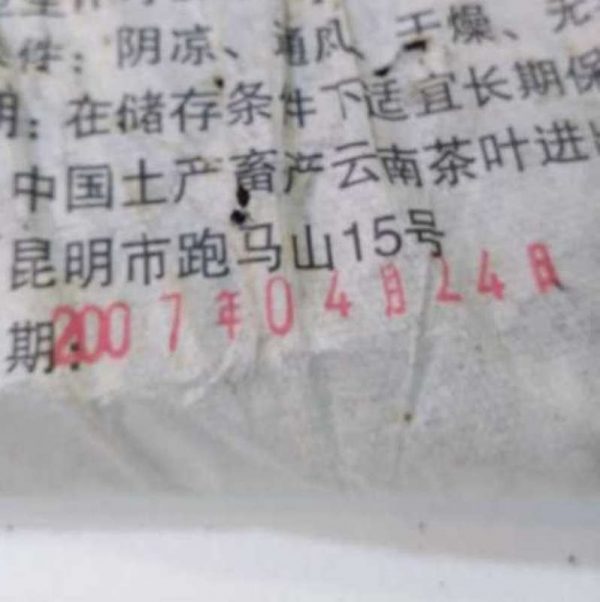 件：阴凉、通风、干燥、无
明：在储存条件下适宜长期保
中国土产畜产云南茶叶进出
昆明市跑马山15号
期：2007年04月24日